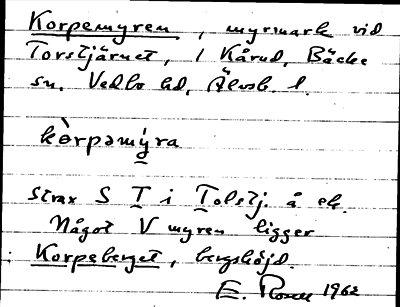 Korpemyren, myrmark vid
Torstjärnet, 1 Kårud, Bäcke
sn. Vedbo hd, Älvsb. l.
kòrpəmýra
strax S T i Tolstj. å ek.
Något V myren ligger
Korpeberget, bergshöjd.
E. Rosell 1962